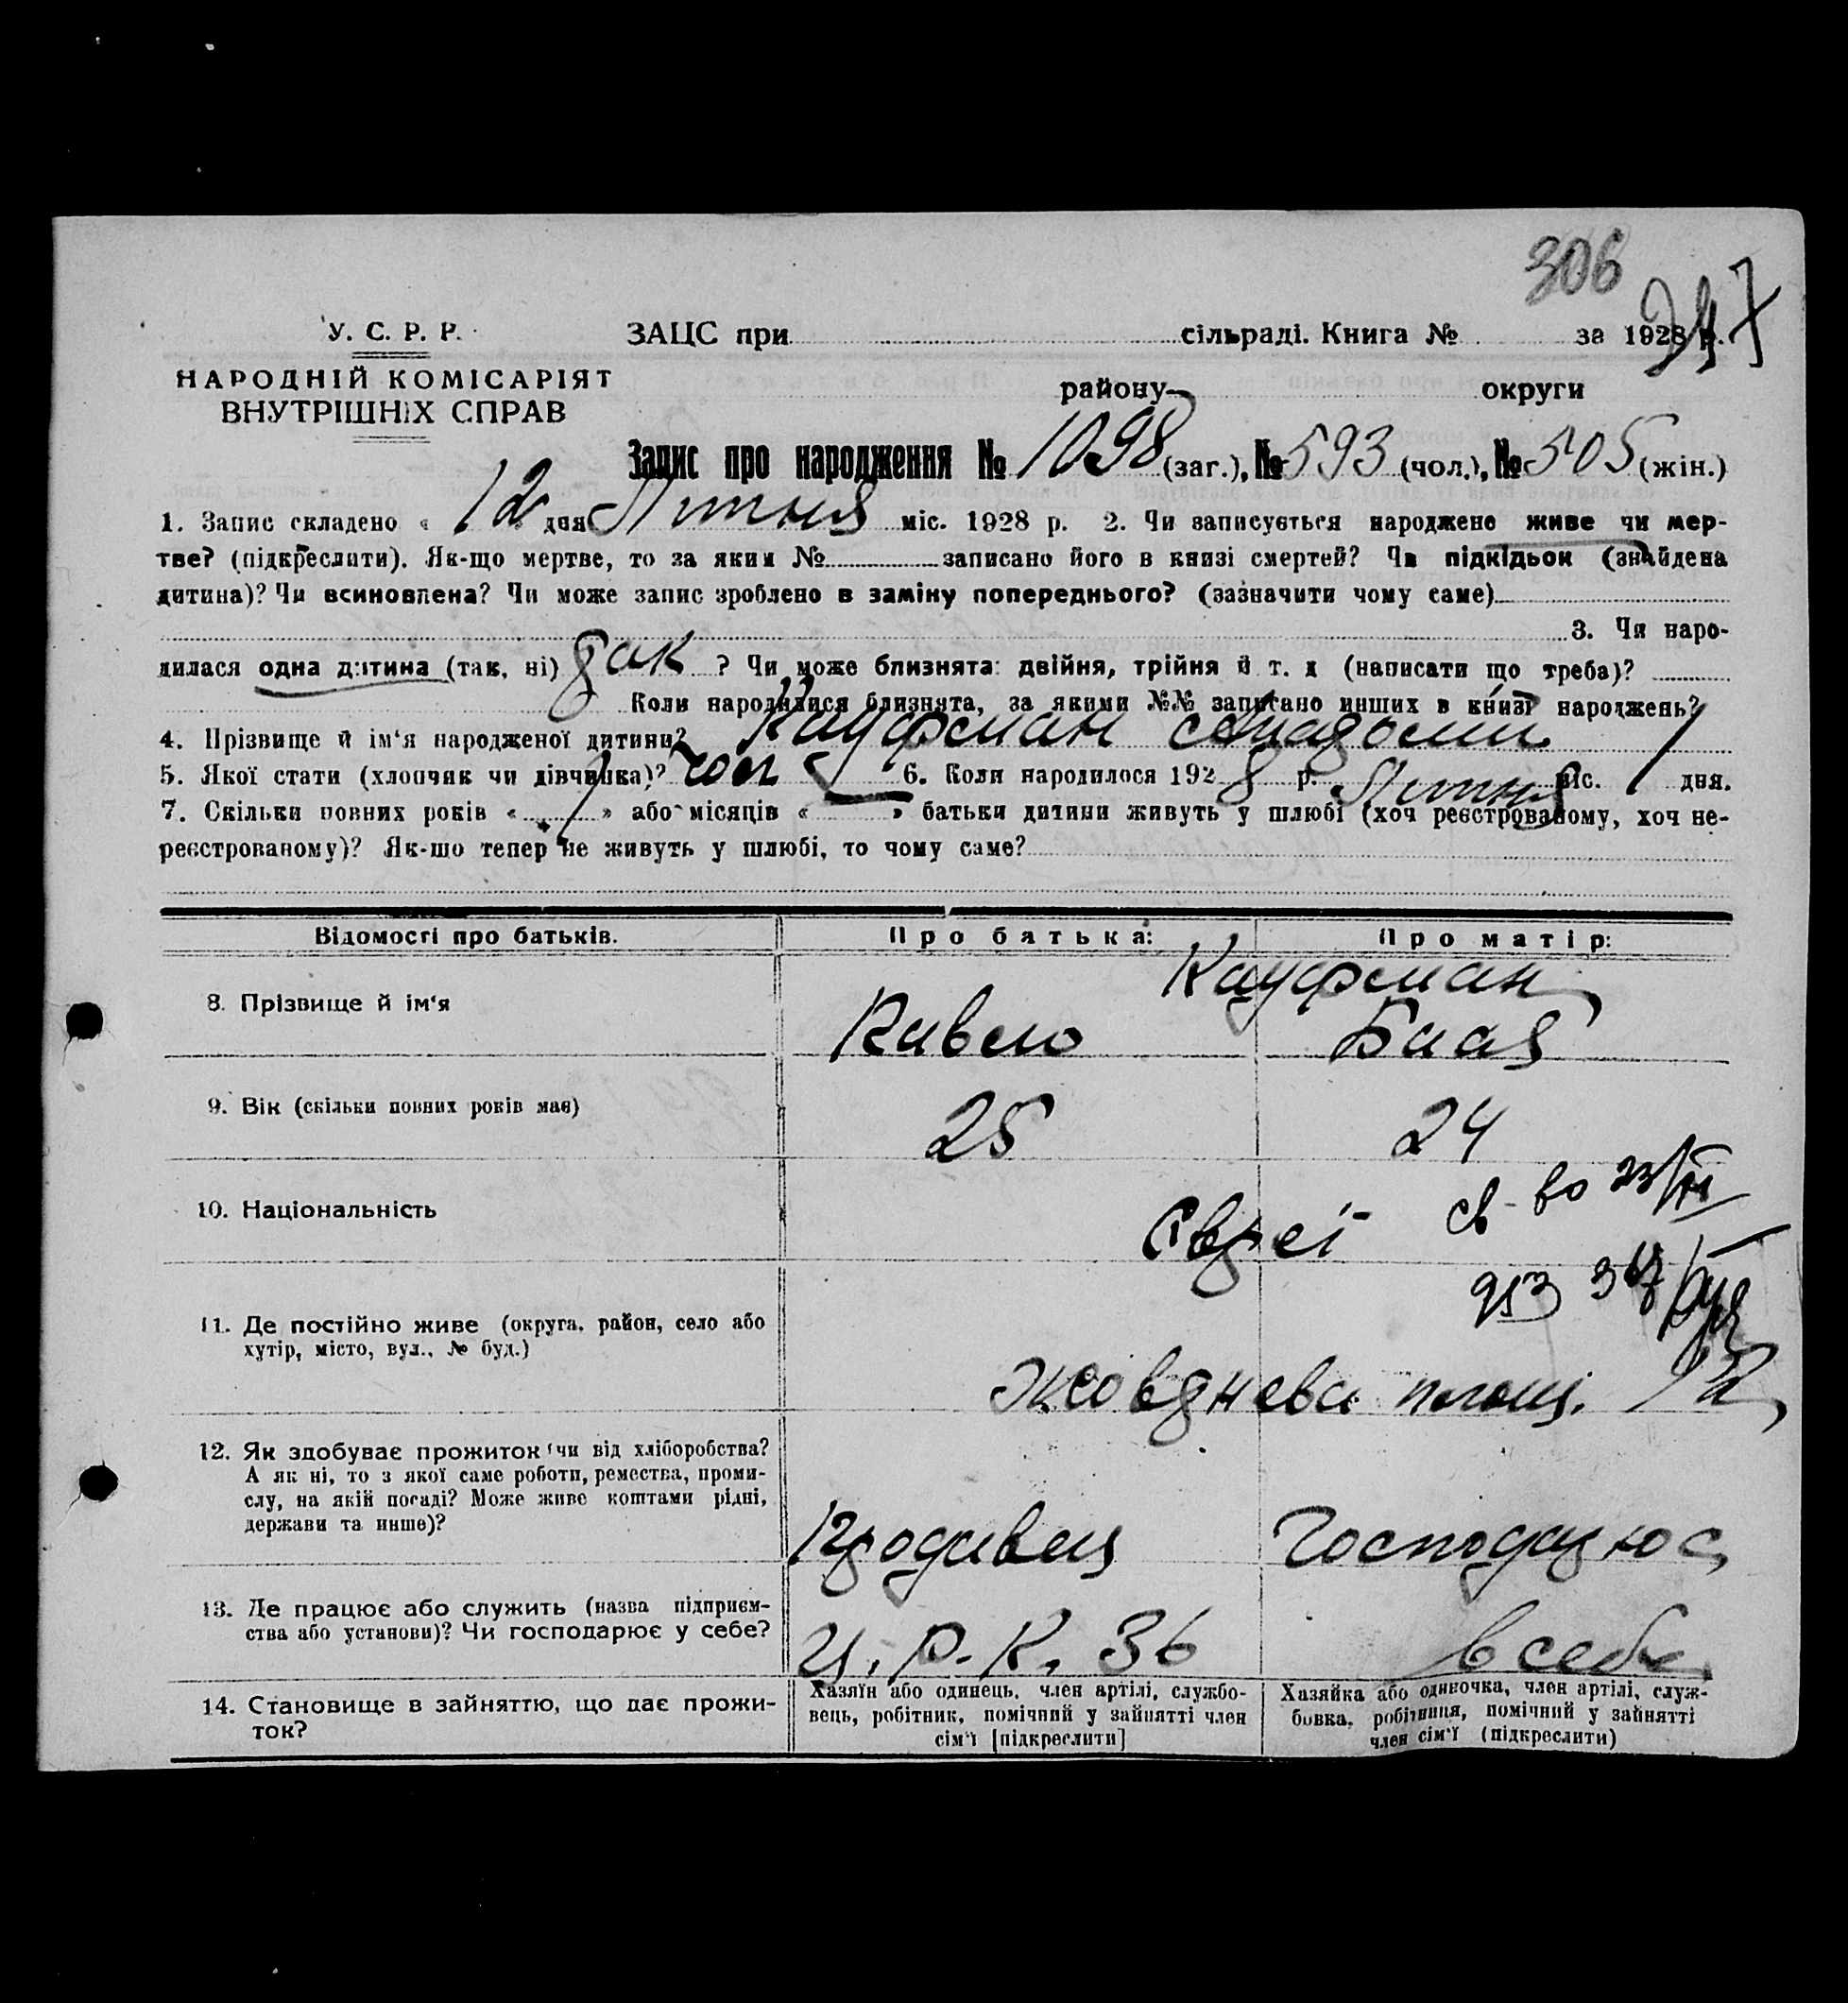 306
247
У. С. Р. Р.
ЗАЦС при сільраді. Книга № за 1928 р.
НАРОДНІЙ КОМІСАРІЯТ
ВНУТРІШНІХ СПРАВ
району округи
Запис про народження № 1098 (заг.), № 593 (чол.), № 505 (жін.)
1. Запис складено « 12 » дня Липня міс. 1928 р. 2. Чи записується народжене живе чи мер-
тве? (підкреслити). Як-що мертве, то за яким № записано його в книзі смертей? Чи підкідьок (знайдена
дитина)? Чи всиновлена? Чи може запис зроблено в заміну попереднього? (зазначити чому саме)
3. Чи наро-
дилася одна дитина (так, ні) так ? Чи може близнята: двійня, трійня й т. д (написати що треба)?
Коли народилися близнята, за якими №№ записано инших в книзі народжень?
4. Прізвище й ім'я народженої дитини? Кауфман
5. Якої стати (хлопчик чи дівчинка)? чол 6. Коли народилося 1928 р. Липня міс. 1 дня.
7. Скільки повних років « » або місяців « » батьки дитини живуть у шлюбі (хоч реєстрованому, хоч не-
реєстрованому)? Як-що тепер не живуть у шлюбі, то чому саме?
Відомості про батьків. Про батька: Про матір:
Кауфман
8. Прізвище й ім'я
9. Вік (скільки повних років має) 25 24
св-во
10. Національність Євреї
11. Де постійно живе (округа, район, село або
хутір, місто, вул., № буд.)
Жовднева площ. 12
12. Як здобуває прожиток (чи від хліборобства?
А як ні, то з якої саме роботи, ремества, проми-
слу, на якій посаді? Може живе коштами рідні,
держави та инше)?
Продавець Господарює
13. Де працює або служить (назва підприєм-
ства або установи)? Чи господарює у себе?
Ц. Р. К. 36 в себе
14. Становище в зайняттю, що дає прожи-
ток?
Хазяїн або одинець, член артілі, службо-
вець, робітник, помічний у зайнятті член
сім'ї [підкреслити]
Хазяйка або одиночка, член артілі, служ-
бовка, робітниця, помічний у зайнятті
член сім'ї (підкреслити)